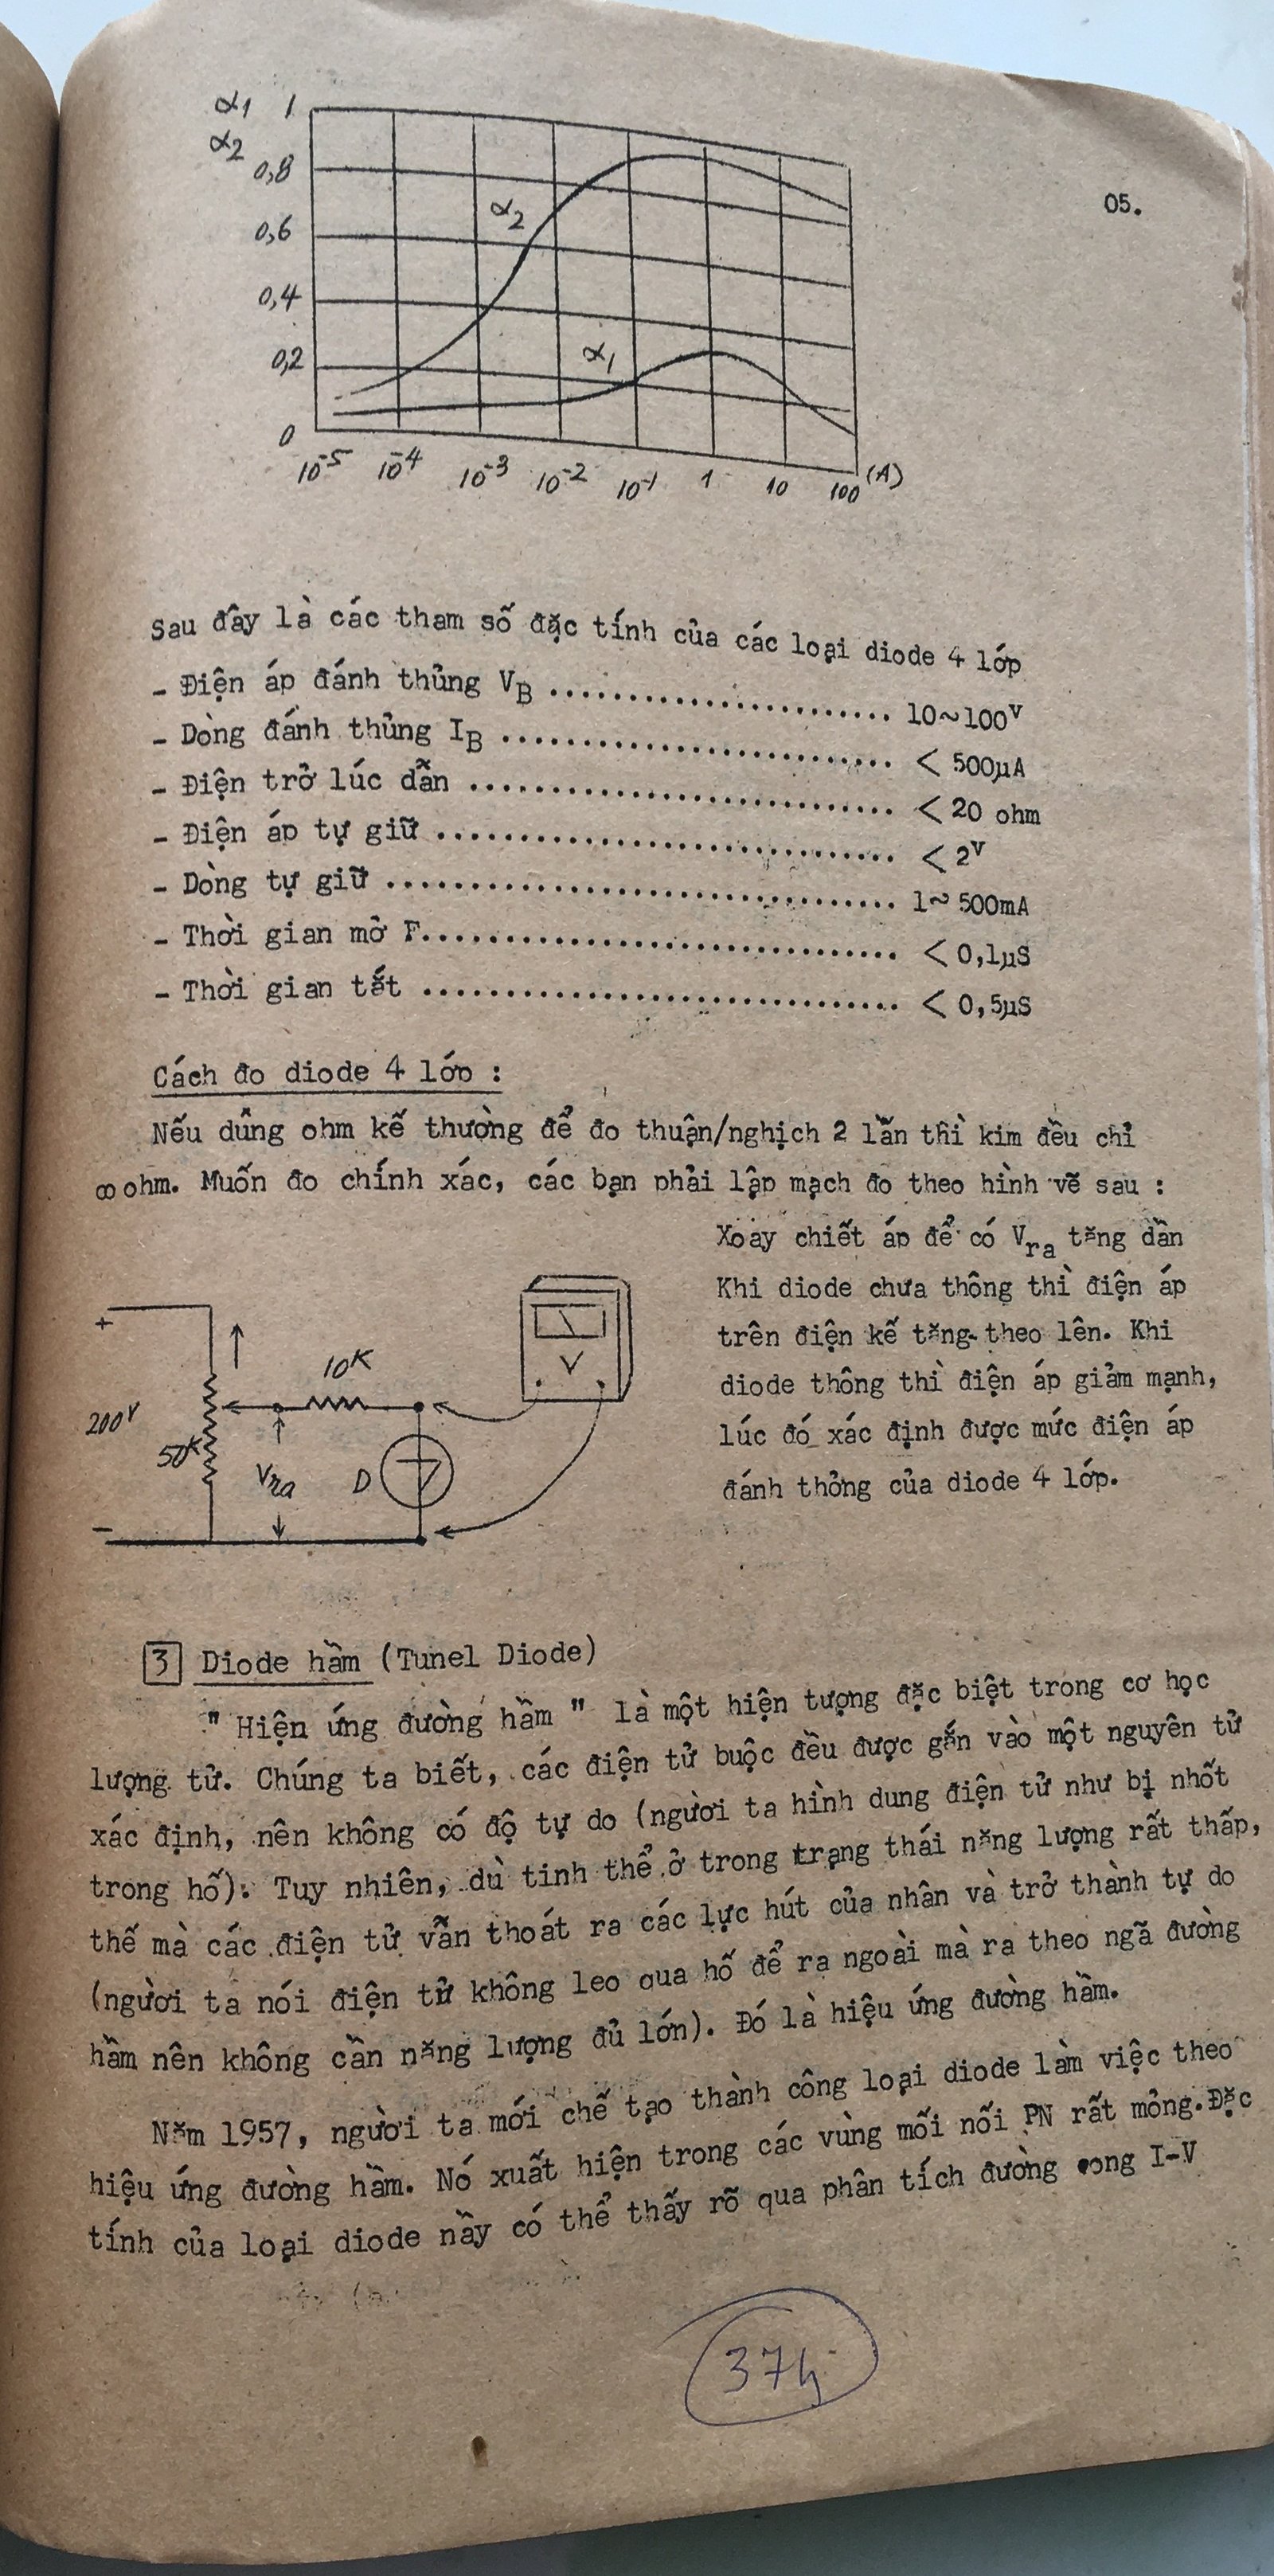 α1 1
α2
0,8
0,6
0,4
0,2
0
α2
α1
10⁻⁵ 10⁻⁴ 10⁻³ 10⁻² 10⁻¹ 1 10 100 (A)
05.
Sau đây là các tham số đặc tính của các loại diode 4 lớp
- Điện áp đánh thủng VB .......................... 10~100V
- Dòng đánh thủng IB .............................. < 500µA
- Điện trở lúc dẫn ................................ < 20 ohm
- Điện áp tự giữ .................................. < 2V
- Dòng tự giữ ..................................... 1~ 500mA
- Thời gian mở F................................... < 0,1µS
- Thời gian tắt ................................... < 0,5µS
Cách đo diode 4 lớp :
Nếu dùng ohm kế thường để đo thuận/nghịch 2 lần thì kim đều chỉ
∞ ohm. Muốn đo chính xác, các bạn phải lập mạch đo theo hình vẽ sau :
Xoay chiết áp để có Vra tăng dần
Khi diode chưa thông thì điện áp
trên điện kế tăng theo lên. Khi
diode thông thì điện áp giảm mạnh,
lúc đó xác định được mức điện áp
đánh thỏng của diode 4 lớp.
+
200V
50K
10K
Vra
D
V
-
3 Diode hầm (Tunel Diode)
" Hiện ứng đường hầm " là một hiện tượng đặc biệt trong cơ học
lượng tử. Chúng ta biết, các điện tử buộc đều được gắn vào một nguyên tử
xác định, nên không có độ tự do (người ta hình dung điện tử như bị nhốt
trong hố). Tuy nhiên, dù tinh thể ở trong trạng thái năng lượng rất thấp,
thế mà các điện tử vẫn thoát ra các lực hút của nhân và trở thành tự do
(người ta nói điện tử không leo qua hố để ra ngoài mà ra theo ngã đường
hầm nên không cần năng lượng đủ lớn). Đó là hiệu ứng đường hầm.
Năm 1957, người ta mới chế tạo thành công loại diode làm việc theo
hiệu ứng đường hầm. Nó xuất hiện trong các vùng mối nối PN rất mỏng. Đặc
tính của loại diode nầy có thể thấy rõ qua phân tích đường cong I-V